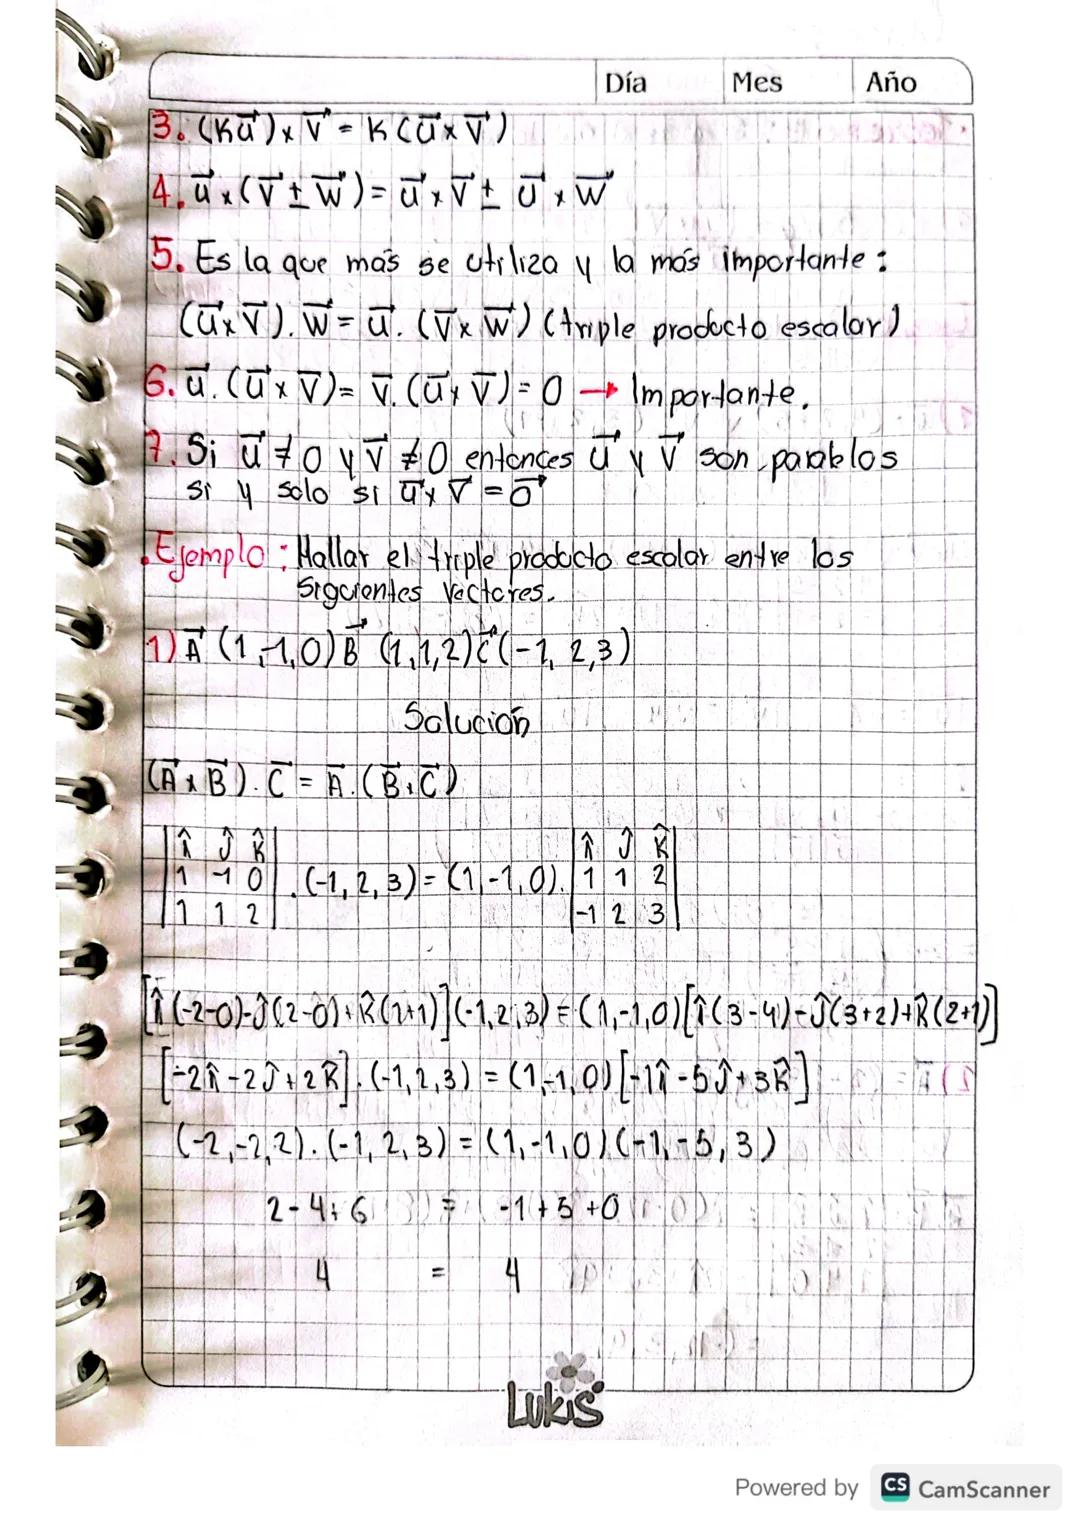 Día Mes Año
3. (Ku⃗) x v⃗ = K (u⃗ x v⃗)
4. u⃗ x (v⃗ ± w⃗) = u⃗ x v⃗ ± u⃗ x w⃗
5. Es la que más se utiliza y la más importante :
(u⃗ x v⃗) . w⃗ = u⃗ . (v⃗ x w⃗) (triple producto escalar)
6. u⃗ . (u⃗ x v⃗) = v⃗ . (u⃗ x v⃗) = 0 → Importante.
7. Si u⃗ ≠ 0 y v⃗ ≠ 0 entonces u⃗ y v⃗ son paralelos
si y solo si u⃗ x v⃗ = 0⃗
. Ejemplo : Hallar el triple producto escalar entre los
siguientes vectores.
1) A⃗ (1,-1,0) B⃗ (1,1,2) C⃗ (-1, 2,3)
Solución
(A⃗ x B⃗) . C⃗ = A⃗ . (B⃗ x C⃗)
|î ĵ k̂| |î ĵ k̂|
|1 -1 0| . (-1, 2, 3) = (1,-1,0). |1 1 2|
|1 1 2| |-1 2 3|
[î (-2-0)-ĵ(2-0)+k̂(1+1)](-1,2,3) = (1,-1,0)[î(3-4)-ĵ(3+2)+k̂(2+1)]
[-2î -2ĵ + 2k̂] . (-1,2,3) = (1,-1,0) [-1î -5ĵ +3k̂]
(-2,-2,2) . (-1, 2, 3) = (1,-1,0) (-1,-5, 3)
2 - 4 + 6 = -1 + 5 + 0
4 = 4
Lukis
Powered by CS CamScanner